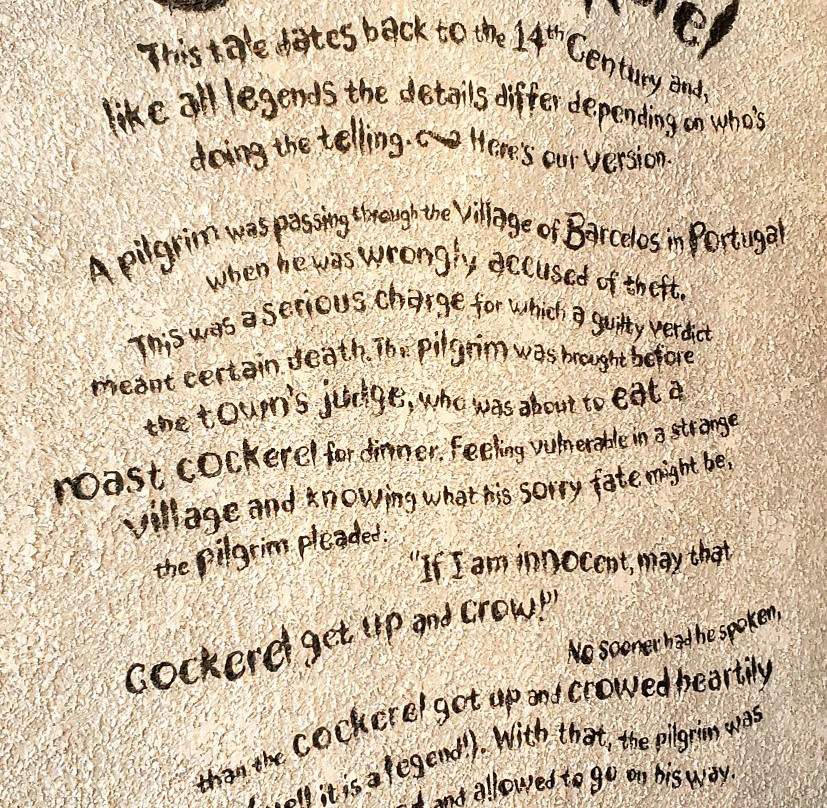 This tale dates back to the 14th Century and,
like all legends the details differ depending on who's
doing the telling. Here's our version.
A pilgrim was passing through the Village of Barcelos in Portugal
when he was wrongly accused of theft.
This was a serious charge for which a guilty verdict
meant certain death. The pilgrim was brought before
the town's judge, who was about to eat a
roast cockerel for dinner. Feeling vulnerable in a strange
village and knowing what his sorry fate might be,
the pilgrim pleaded.
"If I am innocent, may that
cockerel get up and crow!"
No sooner had he spoken,
than the cockerel got up and crowed heartily
(well it is a legend!). With that, the pilgrim was
and allowed to go on his way.